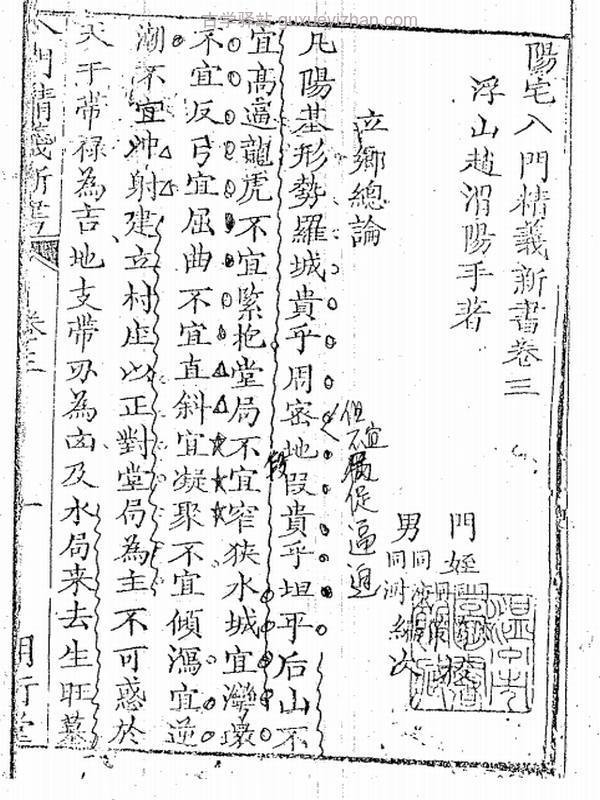 古学驿站 guxueyizhan.com
陽宅入門精義新書卷三
浮山趙渭陽手著
門姪
男同濟同澍編次
立鄉總論
凡陽基形勢羅城貴乎周密地叚貴乎坦平后山不
但不宜偪促逼迫
段
宜高逼龍虎不宜緊抱堂局不宜窄狹水城宜灣環
不宜反弓宜屈曲不宜直斜宜凝聚不宜傾瀉宜逆
潮不宜冲射建立村庄以正對堂局為主不可惑於
天干帶禄為吉地支帶刃為凶及水局来去生旺墓
入門精義新書
卷三
一